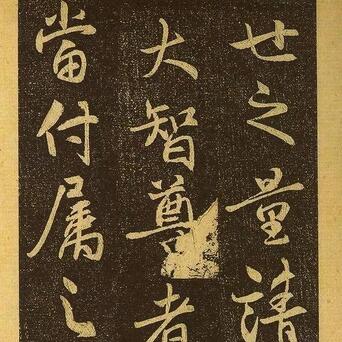 世之量請
大智尊者
當付屬之